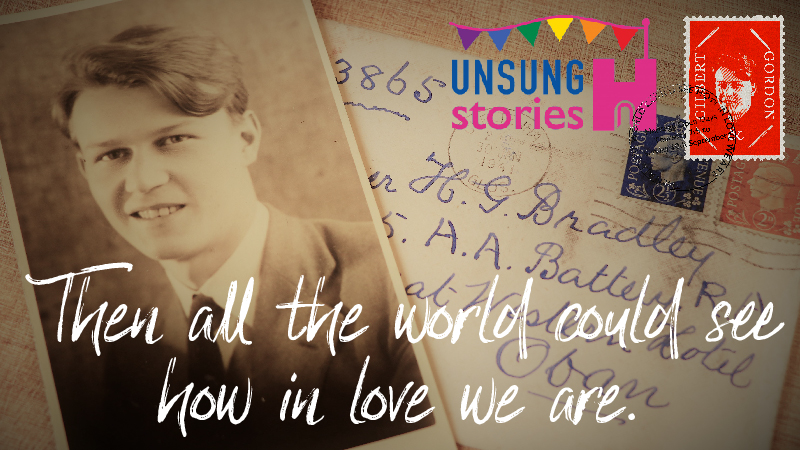 UNSUNG
stories
GILBERT
GORDON
&
3865
H. G. Bradley
A.A. Battery R.A.
at Hotel
Oban
POSTAGE
REVENUE
Then all the world could see
how in love we are.